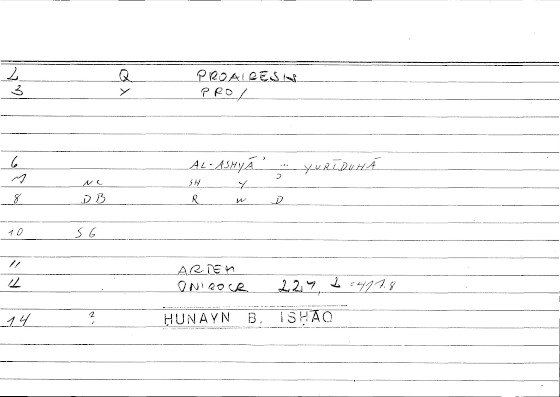 2 Q PROAIRESIS
3 Y PRO/
6 AL-ASHYĀʾ ... YURĪDUHĀ
7 NC SH Y ʾ
8 DB R W D
10 SG
11 ARTEM
12 ONIROCR 227, 2 = 411.8
14 ? ḤUNAYN B. ISḤĀQ